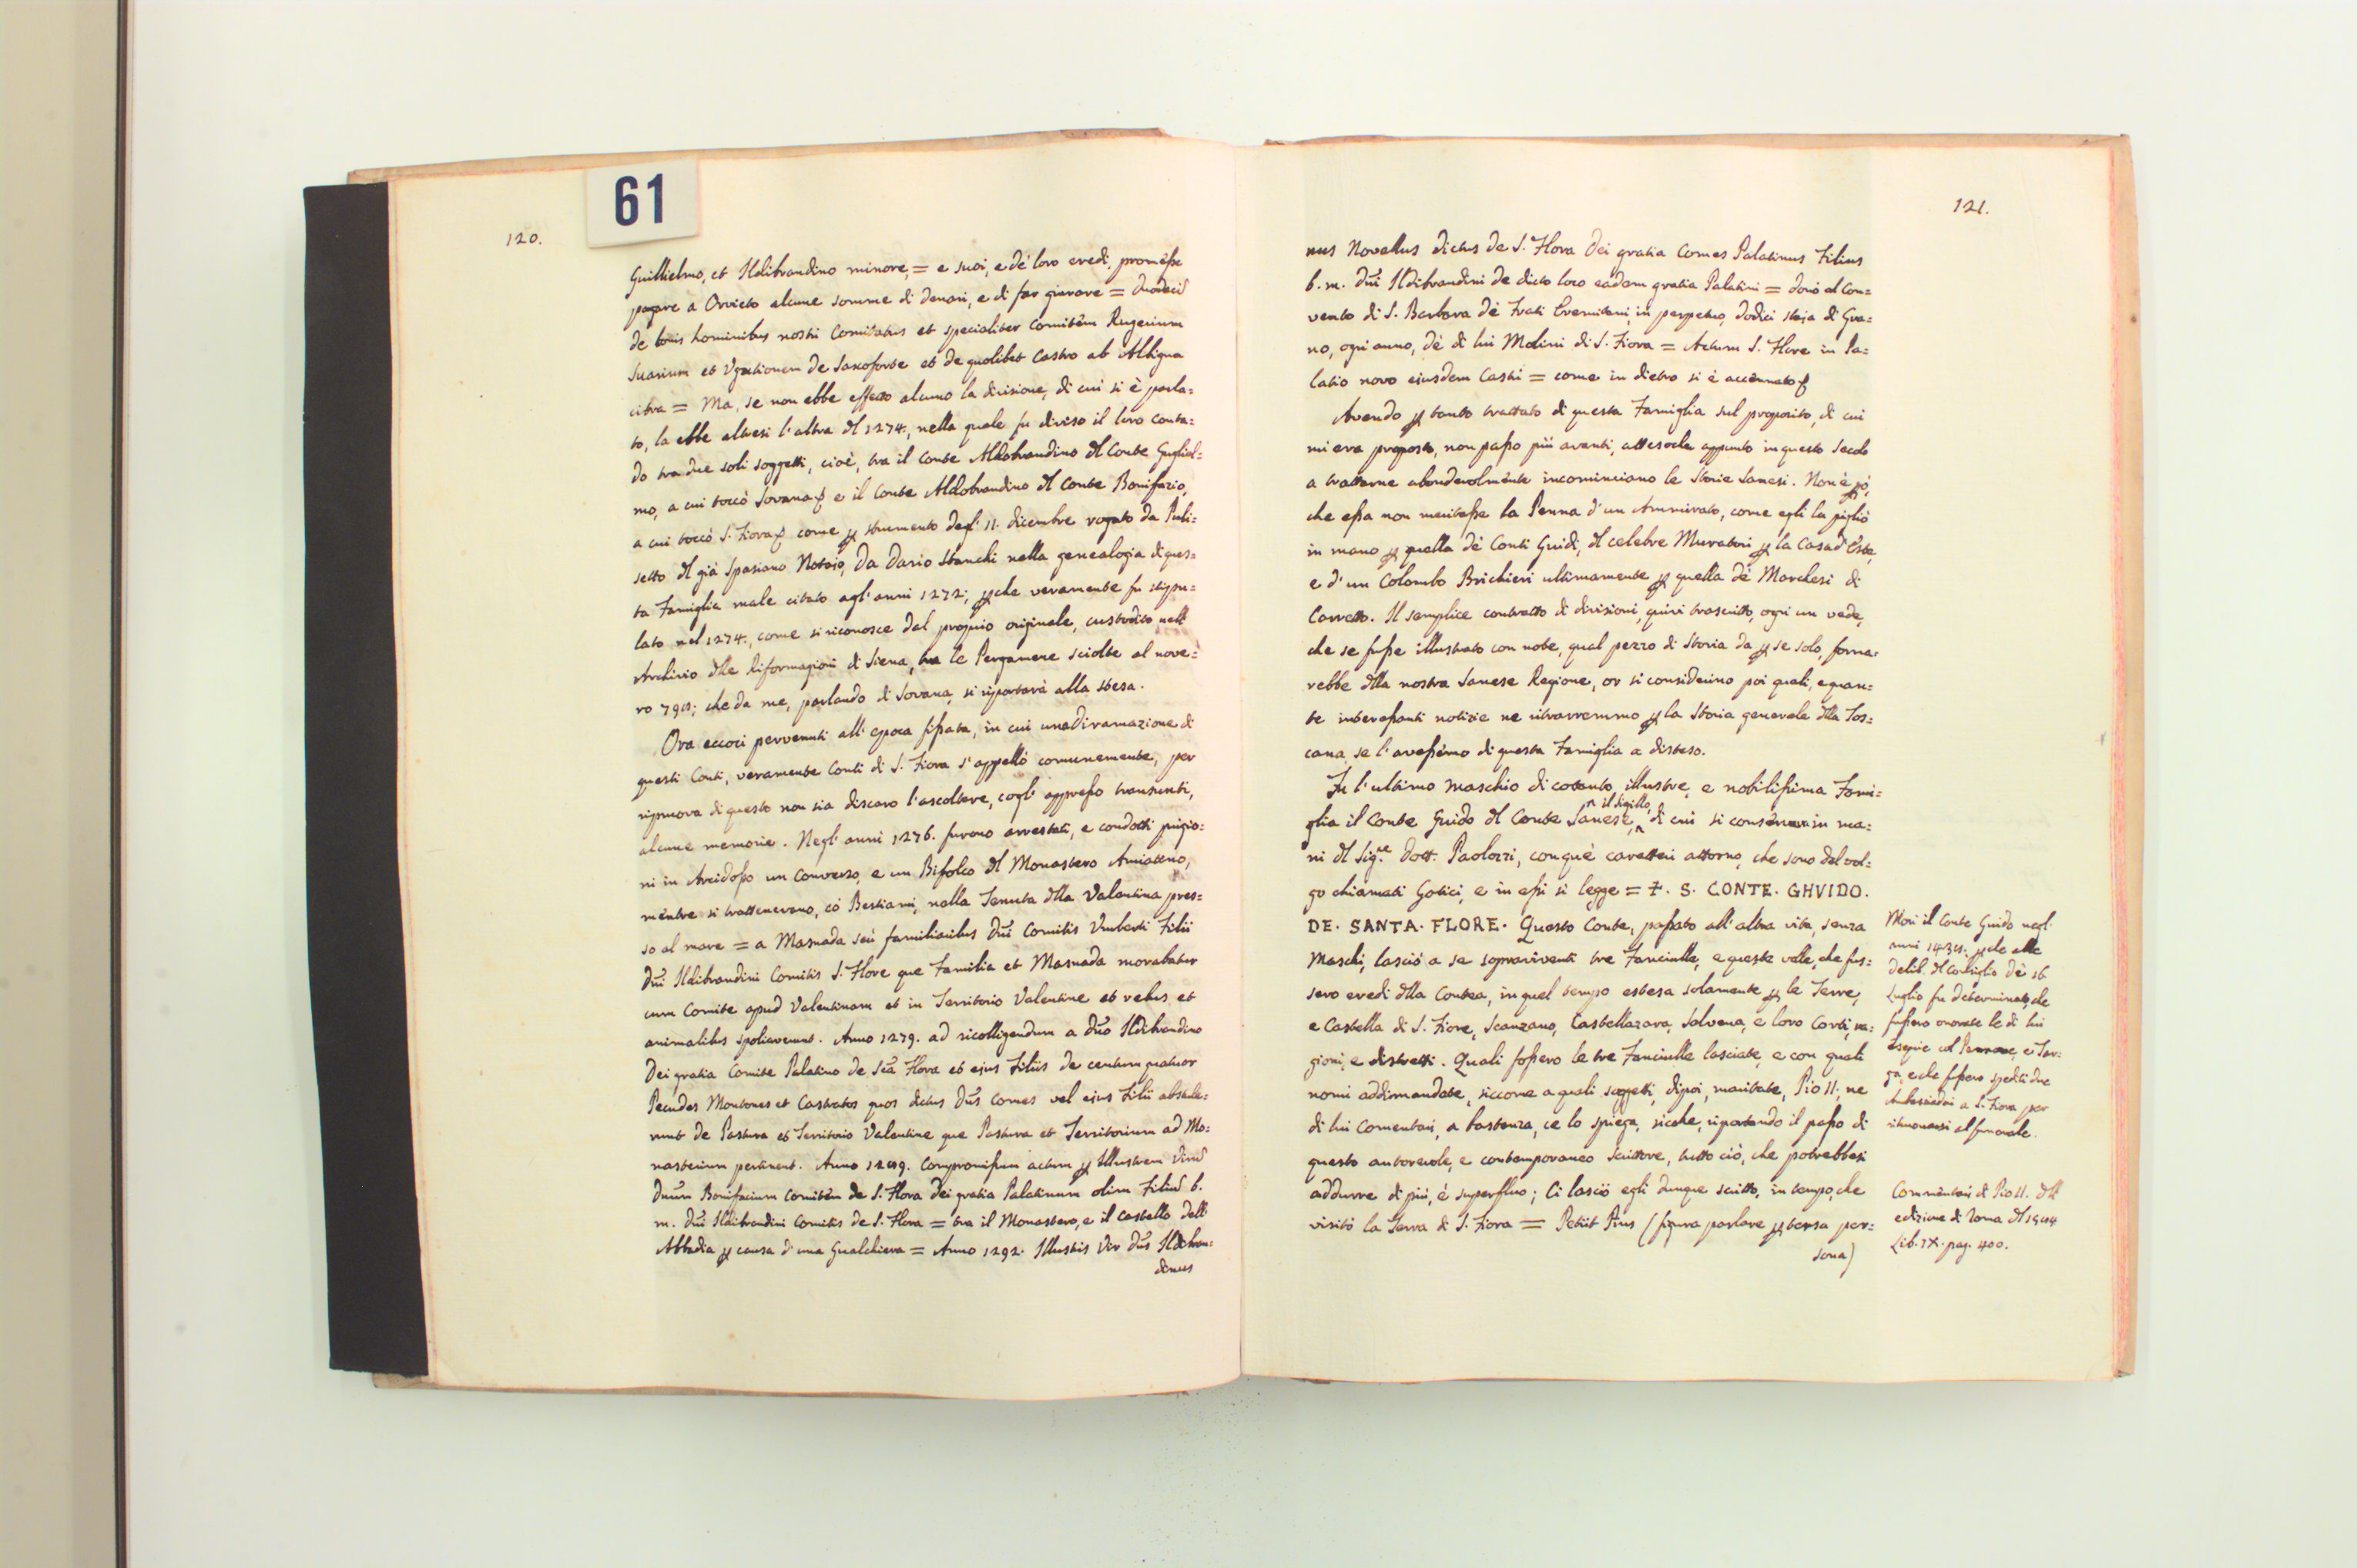 61
120.
Guillielmo, et Ildibrandino minore, = e suoi, e dè loro eredi, promèsse
pagare a Orvieto alcune somme di denari, e di far giurare = duodeci
de bonis hominibus nostri Comitatus et specialiter Comitém Rugerium
Suarium et Vgutionem de Saxoforte et de quolibet Castro ab Albigna
citra = Ma, se non ebbe effetto alcuno la divisione, di cui si è parla=
to, la ebbe altresi l'altra dl 1274., nella quale fu diviso il loro Conta=
do tra due soli soggetti, cioè, tra il Conte Aldobrandino dl Conte Gugliel=
mo, a cui toccò Sovana e il Conte Aldobrandino dl Conte Bonifazio,
a cui toccò S. Fiora come p strumento degl' 11. dicembre rogato da Publi=
setto dl già Spasiano Notaio, da Dario Stanchi nella genealogia di ques=
ta Famiglia male citato agl' anni 1272; pche veramente fu stipu=
lato nel 1274., come si riconosce dal proprio originale, custodito nell'
Archivio dlle Riformagioni di Siena, tra le Pergamene sciolte al nove=
ro 798; che da me, parlando di Sovana, si riportarà alla stesa.
Ora eccoci pervenuti all' epoca fissata, in cui una diramazione di
questi Conti, veramente Conti di S. Fiora s' appellò comunemente, per
riprova di questo non sia discaro l'ascoltare, cogl' appresso transunti,
alcune memorie. Negl' anni 1276. furono arrestati, e condotti prigio=
ni in Arcidosso un Converso, e un Bifolco dl Monastero Amiatino,
méntre si trattenevano, cò Bestiami, nella Tenuta dlla Valentina pres=
so al mare = a Masnada seù familiaribus Dni Comitis Vmberti Filii
Dni Ildibrandini Comitis S. Flore que Familia et Masnada morabatur
cum Comite apud Valentinam et in Territorio Valentine et rebus et
animalibus spoliaverunt. Anno 1279. ad ricolligendum a Dno Ildibrandino
Dei gratia Comite Palatino de Scā Flora et ejus Filiis de centum quatuor
Pecudes Montones et Castratos quos dictus Dns Comes vel ejus Filii abstule=
runt de Pastura et Territorio Valentine que Pastura et Territorium ad Mo=
nasterium pertinent. Anno 1289. Compromissum actum p Illustrem Virū
Dnum Bonifacium Comitém de S. Flora Dei gratia Palatinum olim Filiū b.
m. Dni Ildibrandini Comitis de S. Flora = tra il Monastero, e il Castello dell'
Abbadia p causa d'una Gualchiera = Anno 1292. Illustris Vir Dns Ildibran=
dinus
121.
nus Novellus dictus de S. Flora Dei gratia Comes Palatinus Filius
b. m. Dni Ildibrandini de dicto loco eadem gratia Palatini = donò al Con=
vento di S. Barbara dè Frati Eremitani, in perpetuo, dodici staja di Gra=
no, ogni anno, dè di lui Molini di S. Fiora = Actum S. Flore in Pa=
latio novo ejusdem Castri = come in dietro si è accénnato
Avendo p tanto trattato di questa Famiglia sul proposito, di cui
mi era proposto, non passo più avanti, attesoche appunto in questo Secolo
a trattarne abondevolménte incominciano le Storie Sanesi. Non è pò,
che essa non meritasse la Penna d'un Ammirato, come egli la pigliò
in mano p quella dè Conti Guidi, dl celebre Muratori p la Casa d'Este,
e d'un Colombo Brichieri ultimamente p quella dè Marchesi di
Carretto. Il semplice contratto di divisioni, quivi trascritto, ogni un vede,
che se fusse illustrato con note, qual pezzo di Storia da p se solo, forma=
rebbe dlla nostra Sanese Regione, or si considerino poi quali, e quan=
te interessanti notizie ne ritrarremmo p la Storia generale dlla Tos=
cana, se l'avessémo di questa Famiglia a disteso.
Fu l'ultimo Maschio di cotanto illustre, e nobilissima Fami=
glia il Conte Guido dl Conte Sanese, il sigillo, di cui si consérva in ma=
ni dl Sig.re Dott. Paolozzi, con què caratteri attorno, che sono dal vol=
go chiamati Gotici, e in essi si legge = +. S. CONTE. GHVIDO.
DE. SANTA. FLORE. Questo Conte, passato all' altra vita, senza
Maschi, lasciò a se sopraviventi tre Fanciulle, e queste volle, che fus=
sero eredi dlla Contea, in quel tempo estesa solamente p le Terre,
e Castella di S. Fiore, Scanzano, Castellazara, Selvena, e loro Corti, ra=
gioni, e distretti. Quali fossero le tre Fanciulle lasciate, e con quali
nomi addimandate, siccome a quali soggetti, dipoi, maritate, Pio II, ne
di lui Comentari, a bastanza, ce lo spiega, sicche, riportando il passo di
questo autorevole, e contemporaneo Scrittore, tutto ciò, che potrebbesi
addurre di più, è superfluo; Ci lasciò egli dunque scritto, in tempo, che
visitò la Terra di S. Fiora = Petiit Pius (figura parlare p terza per=
sona)
Morì il Conte Guido negl'
anni 1438. pche alle
Delib. dl Consiglio dè 16
Luglio fu determinato, che
fussero onorate le di lui
Esequie col Pannone, e Tar=
ga, e che fssero spediti due
Ambasciadori a S. Fiora per
ritrovarsi al funerale.
Comméntari di Pio II. dll'
edizione di Roma dl 1584
Lib. IX. pag. 400.